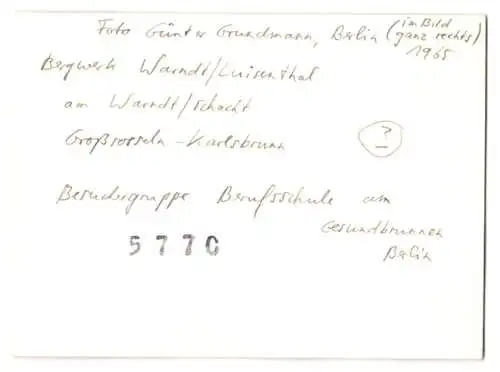 Foto Günter Grundmann, Berlin (im Bild ganz rechts)
1965
Bergwerk Warndt/Luisenthal
am Warndt/schacht
Großrosseln-Karlsbrunn
?
Besuchergruppe Berufsschule am
Gesundbrunnen
Berlin
5770